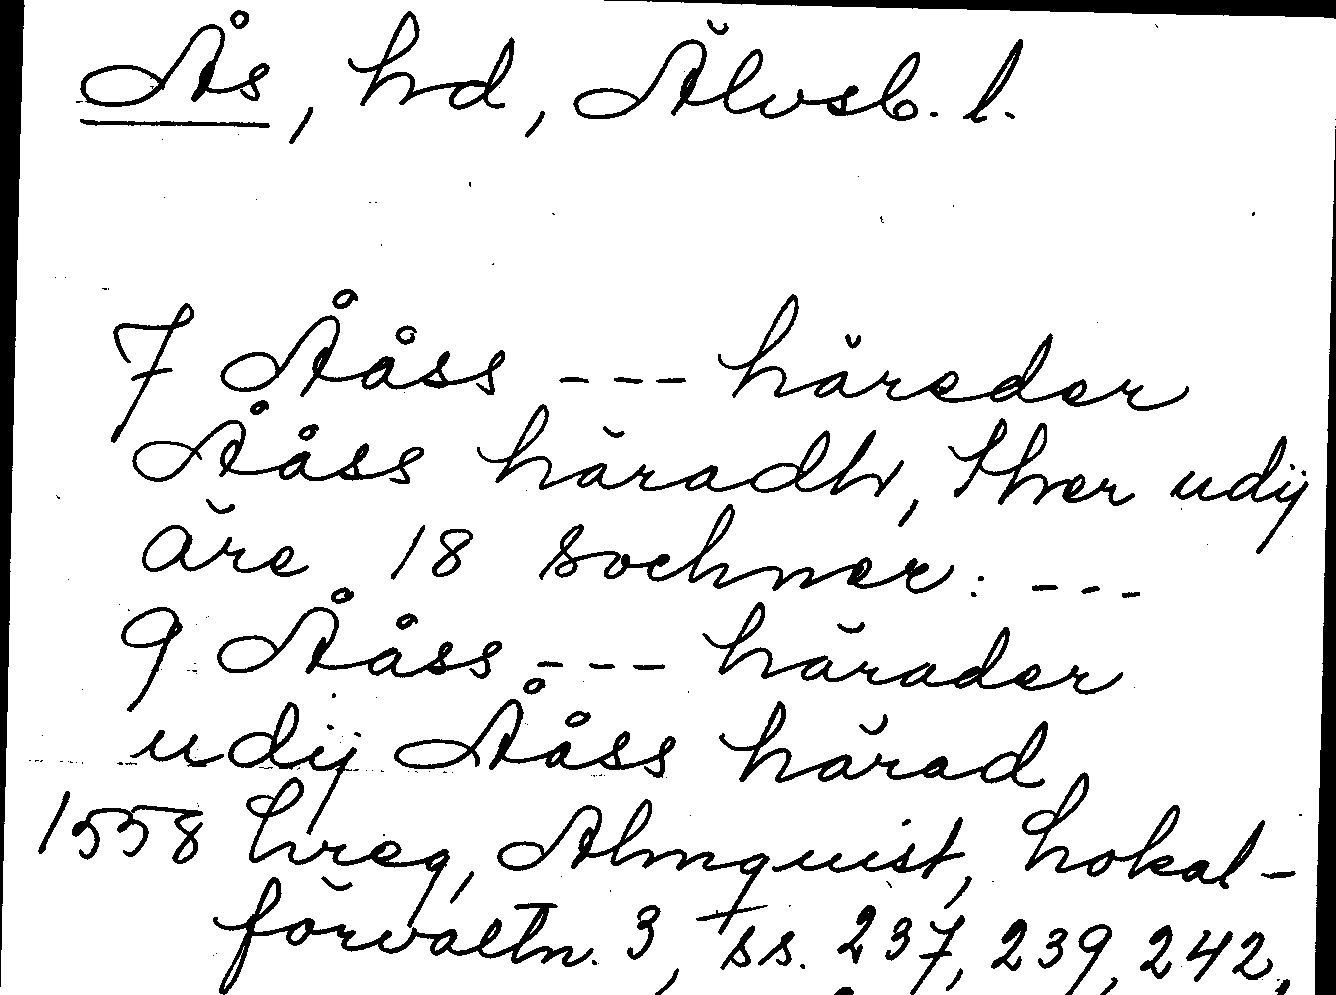 Ås, hd, Älvsb. l.
7 Ååss --- häreder
Ååss häradh, Ther udÿ
äre 18 sochner: ---
9 Ååss --- härader
udÿ Ååss härad
1558 hreg, Almquist, Lokal-
förvaltn. 3, ss. 237, 239, 242,